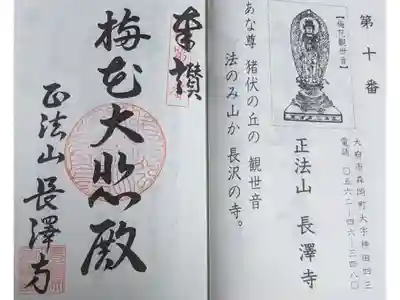 第十番
【梅花観世音】
正法山 長澤寺
大府市森岡町大字神田四三
電話 〇五六二―四六―三四八〇
あな尊 猪伏の丘の観世音
法のみ山か 長沢の寺。
奉讃
梅花大悲殿
正法山 長澤寺